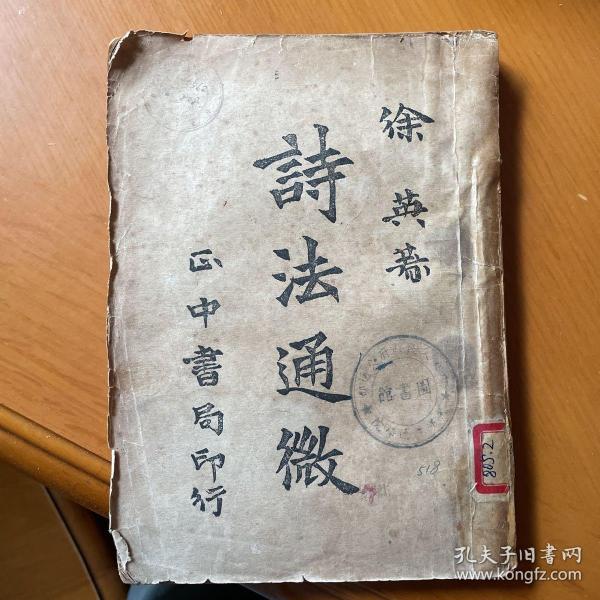 徐英著
詩法通微
正中書局印行
圖書館
518
865.2
孔夫子旧书网
www.kongfz.com